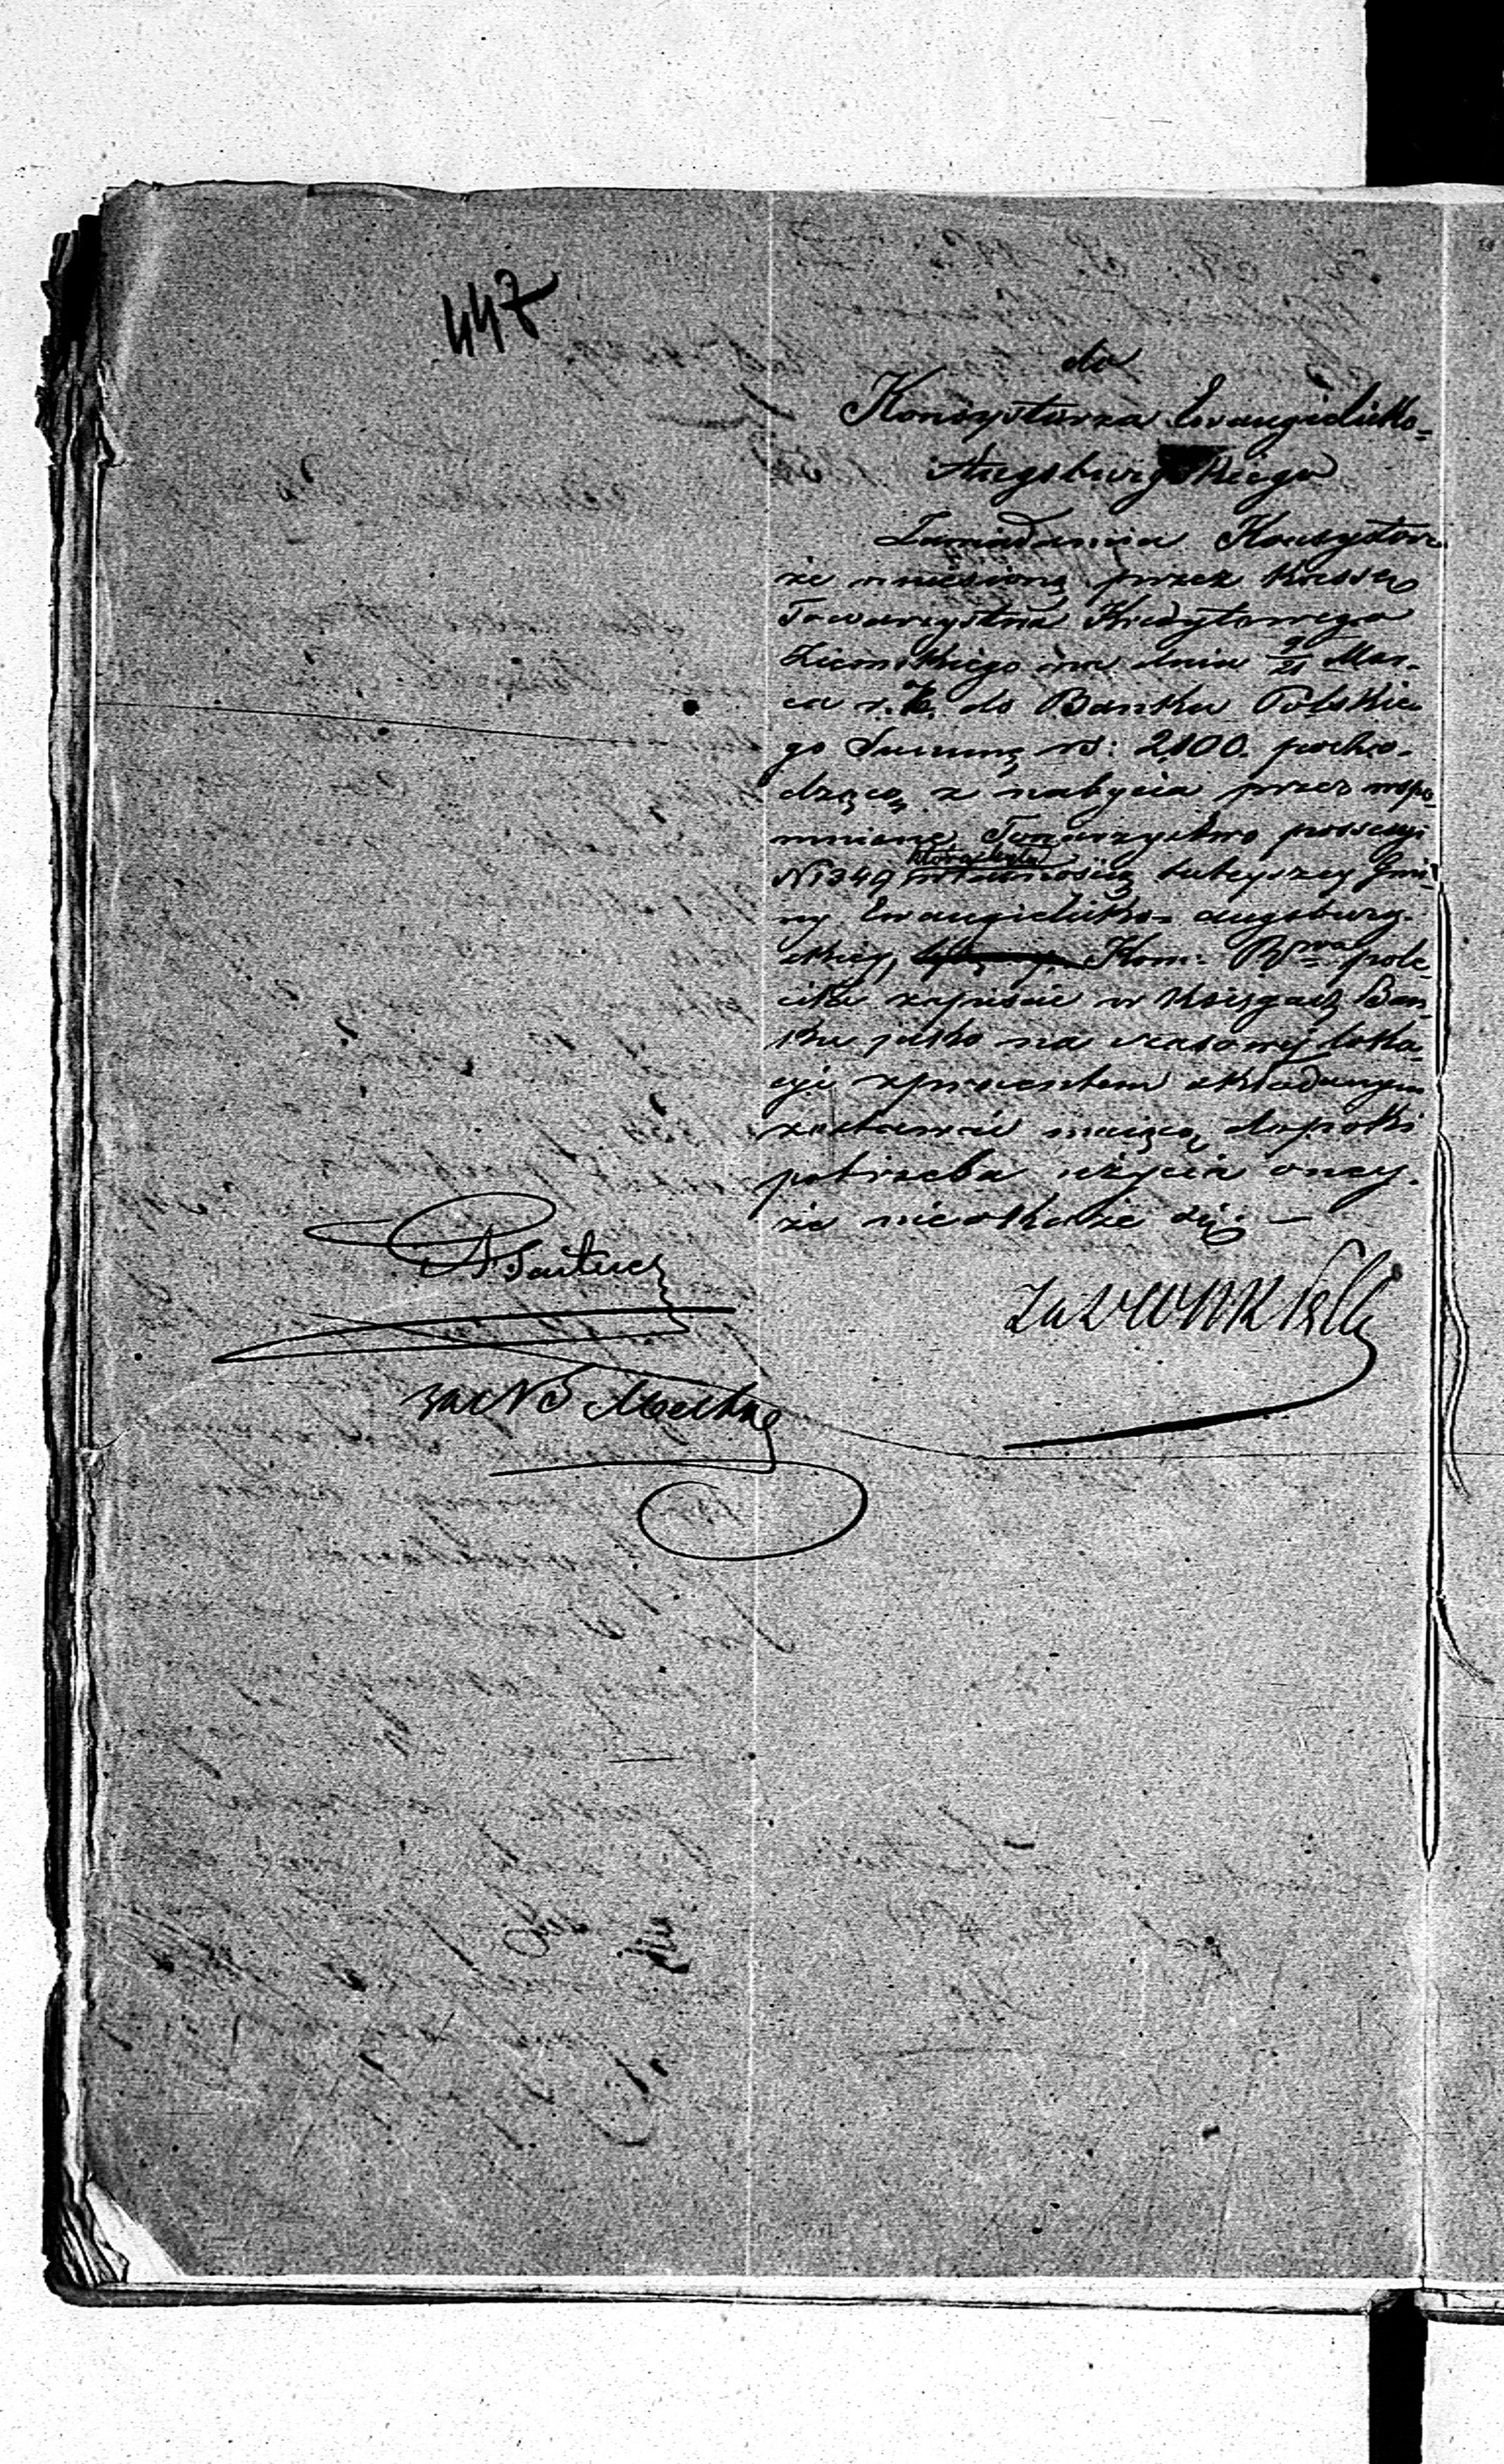 447
do
Konsystorza Ewangielicko-
Augsburgskiego
Zawiadamia Konsystorz
że wniesioną przez Kassę
Towarzystwa Kredytowego
Ziemskiego na dniu 9/21 Mar-
ca r. b. do Banku Polskie-
go Summę rs: 2100. pocho-
dzącą z nabycia przez wspo-
mnione Towarzystwo possessyi
N 1349 która była własnością tuteyszey Gmi-
ny Ewangielicko-augsburg-
skiey, Kom: Rwa pole-
ciła zapisać w księgach Ban-
ku jako na czasowej loka-
cyi z procentem składanym
zostawać mającą dopóki
potrzeba użycia oney-
że nieokaże się; —
za N S